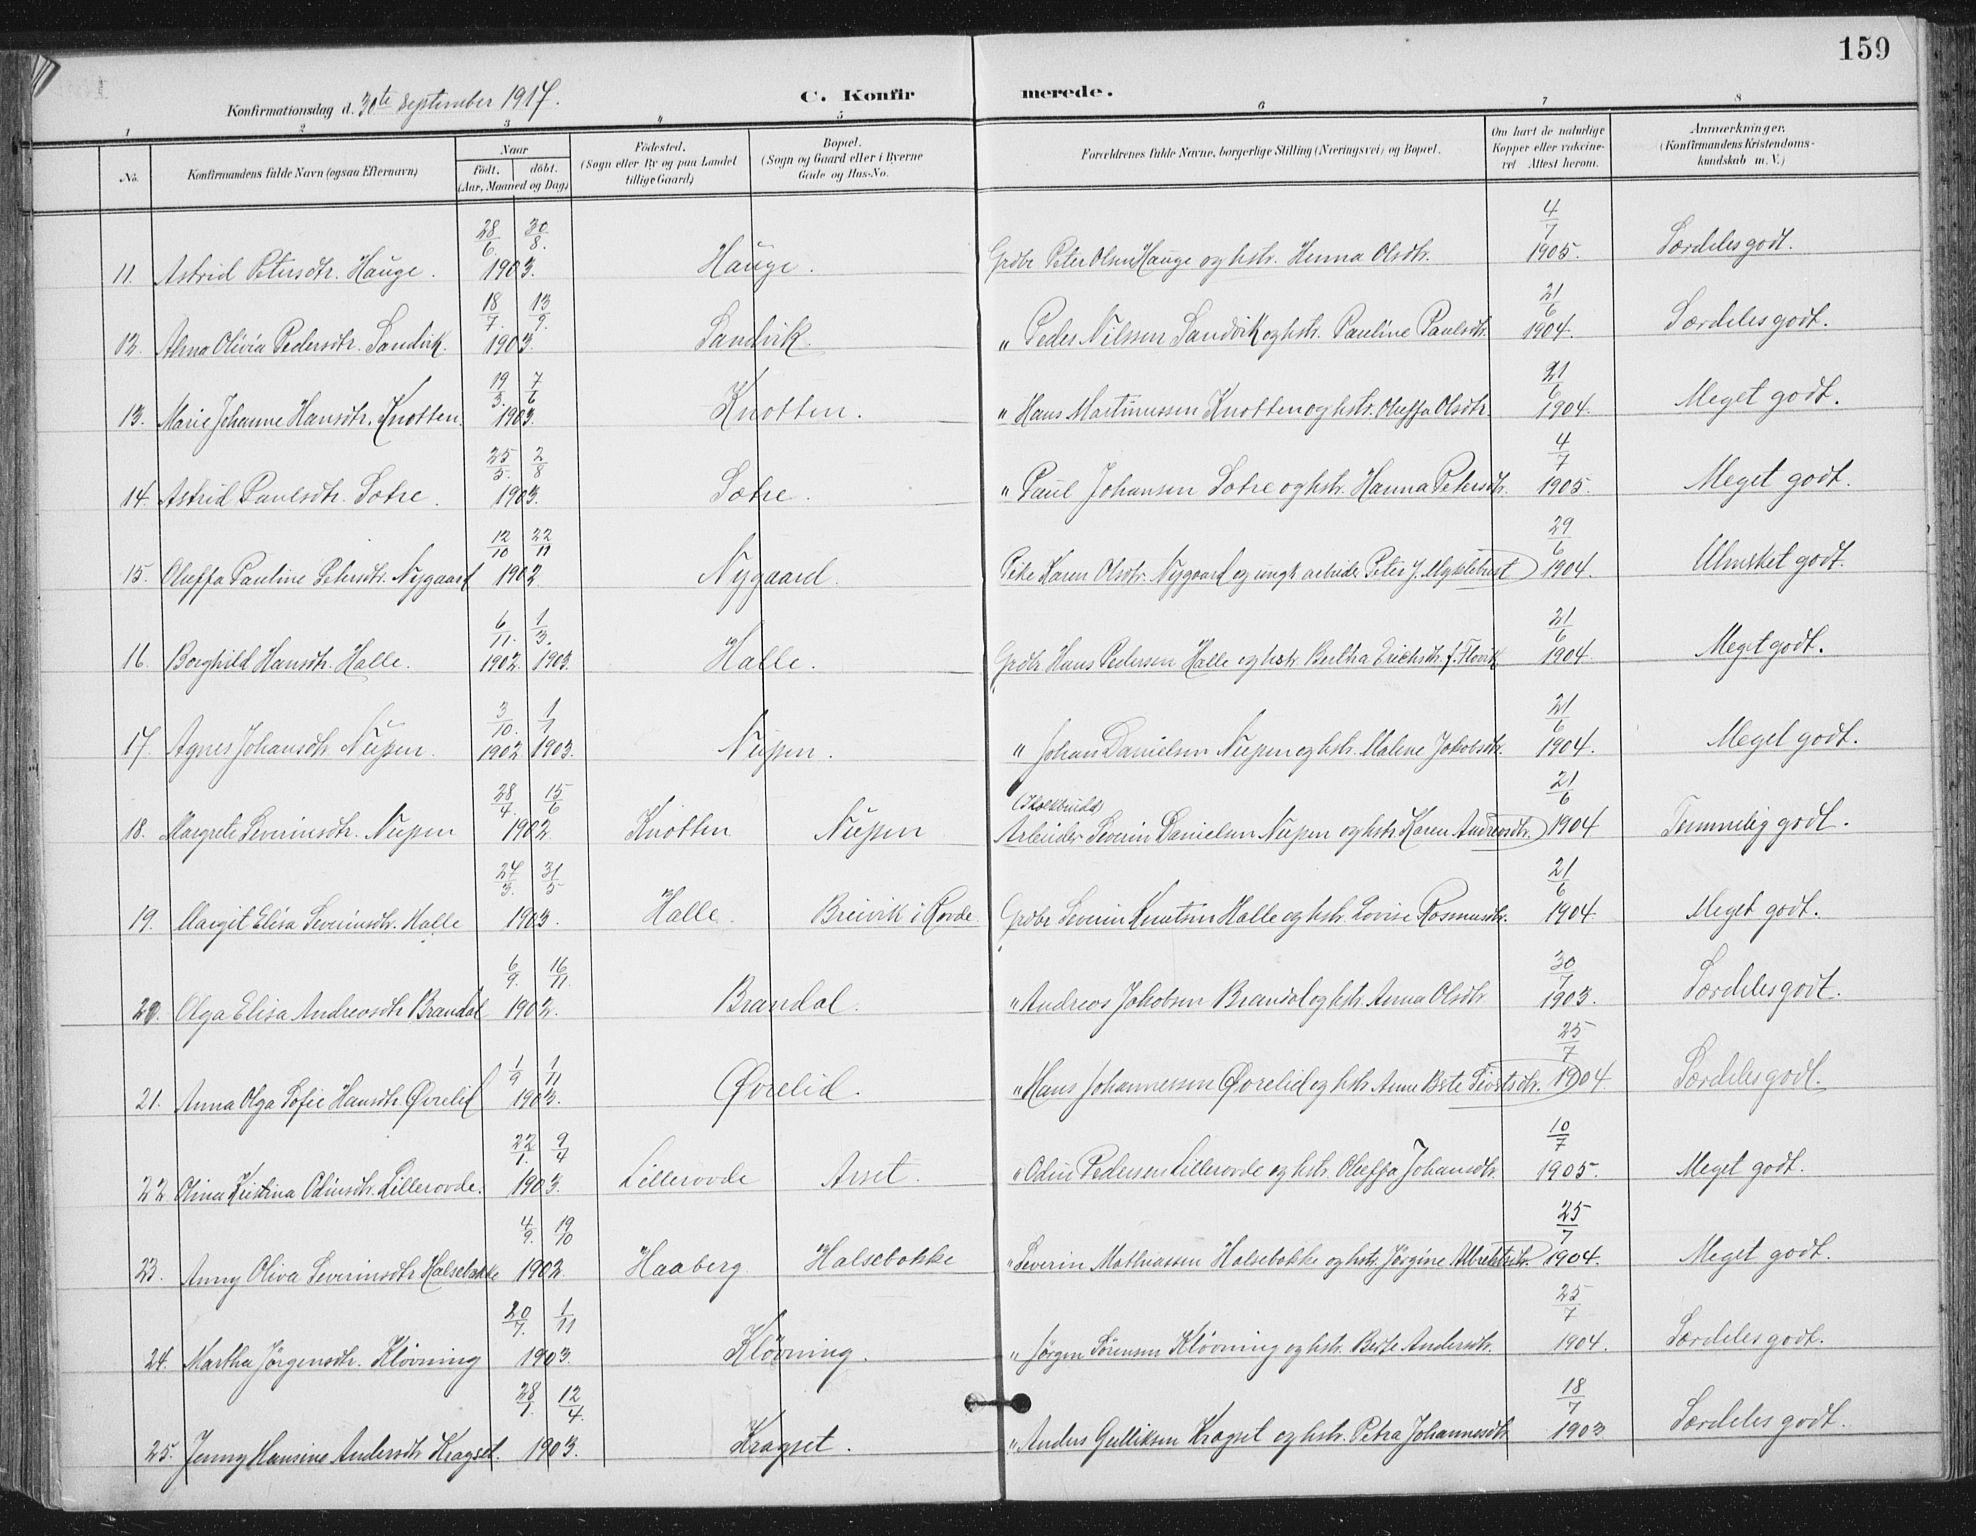 159
Konfirmationsdag d. 30te September 1917. C. Konfirmerede.
1 2 3 4 5 6 7 8
No. Konfirmandens fulde Navn (ogsaa Efternavn) Naar Födt. döbt. (Aar, Maaned og Dag) Födested. (Sogn eller By og paa Landet tillige Gaard) Bopæl. (Sogn og Gaard eller i Byerne Gade og Hus-No. Forældrenes fulde Navne, borgerlige Stilling (Næringsvei) og Bopæl. Om havt de naturlige Kopper eller vaccineret Attest herom. Anmærkninger. (Konfirmandens Kristendomskundskab m. V.)
11. Astrid Petersdtr. Hauge. 28/6 30/8. 1903. Hauge. Grdbr Peter Olsen Hauge og hstr. Hanna Olsdtr. 4/7 1905. Særdeles godt.
12. Alma Olivia Pedersdtr. Sandvik. 18/7. 13/9. 1903. Sandvik. " Peder Nilssen Sandvik og hstr. Pauline Paulsdtr. 21/6 1904. Særdeles godt.
13. Marie Johanne Hansdtr. Knotten. 19/3. 7/6 1903. Knotten. " Hans Martinussen Knotten og hstr. Oluffa Olsdtr. 21/6 1904. Meget godt.
14. Astrid Paulsdtr. Sætre. 25/5. 2/8 1903. Sætre. " Paul Johansen Sætre og hstr. Hanna Petersdtr. 4/7 1905. Meget godt.
15. Oluffa Pauline Petersdtr. Nygaard 12/10 22/11 1902. Nygaard. Pike Karen Olsdtr. Nygaard og ungk. arbeider Peter J. Myklebust 29/6 1904. Utmerket godt.
16. Borghild Hansdtr. Halle. 6/11. 1902. 1/3. 1903. Halle. Grdbr Hans Pedersen Halle og hstr. Bertha Eriksdtr. f. Flovik 21/6 1904. Meget godt.
17. Agnes Johansdtr. Nupen. 3/10. 1902. 1/1 1903. Nupen. " Johan Danielsen Nupen og hstr. Malene Jakobsdtr. 21/6 1904. Meget godt.
18. Margrete Severinsdtr. Nupen 28/4. 15/6 1902 Knotten Nupen Arbeider Severin Danielsen Nupen og hstr Karen Andreasdtr. 21/6 1904 Temmelig godt.
19. Margit Elisa Severinsdtr. Halle 24/3. 31/5 1903. Halle. Breivik i Rovde Grdbr Severin Knutsen Halle og hstr. Lovise Rasmusdtr. 21/6 1904. Meget godt.
20. Olga Elisa Andreasdtr Brandal 6/9. 16/11. 1902. Brandal. " Andreas Jakobsen Brandal og hstr. Anna Olsdtr. 30/7 1903. Særdeles godt.
21. Anna Olga Sofie Hansdtr. Øvrelid 1/9 1/11 1903. Øvrelid. " Hans Johannessen Øvrelid og hstr. Anne Berte Sivertsdtr. 25/7 1904 Særdeles godt.
22. Olina Kristina Odinsdtr. Lillerovde. 22/1. 9/4 1903. Lillerovde Arset. " Odin Pedersen Lillerovde og hstr. Oluffa Johansdtr. 10/7 1905. Meget godt.
23. Anny Oliva Severinsdtr Halsebakke 4/9. 19/10 1902. Haaberg Halsebakke " Severin Mathiassen Halsebakke og hstr. Jørgine Albrektsdtr. 25/7 1904. Meget godt.
24. Martha Jørgensdtr. Kløvning 20/7. 1/11 1903. Kløvning. " Jørgen Sørensen Kløvning og hstr. Berte Andersdtr. 25/7 1904. Særdeles godt.
25. Jenny Hansine Andersdtr Kragset. 28/1. 12/4. 1903. Kragset. " Anders Gulliksen Kragset og hstr. Petra Johannesdtr. 18/7 1903 Særdeles godt.